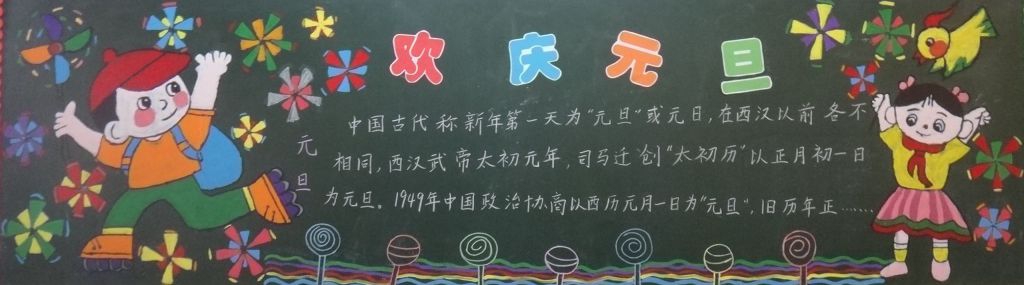 欢庆元旦
元旦
中国古代称新年第一天为“元旦”或元日,在西汉以前各不
相同,西汉武帝太初元年,司马迁创“太初历”以正月初一日
为元旦。1949年中国政治协商以西历元月一日为“元旦”,旧历年正……